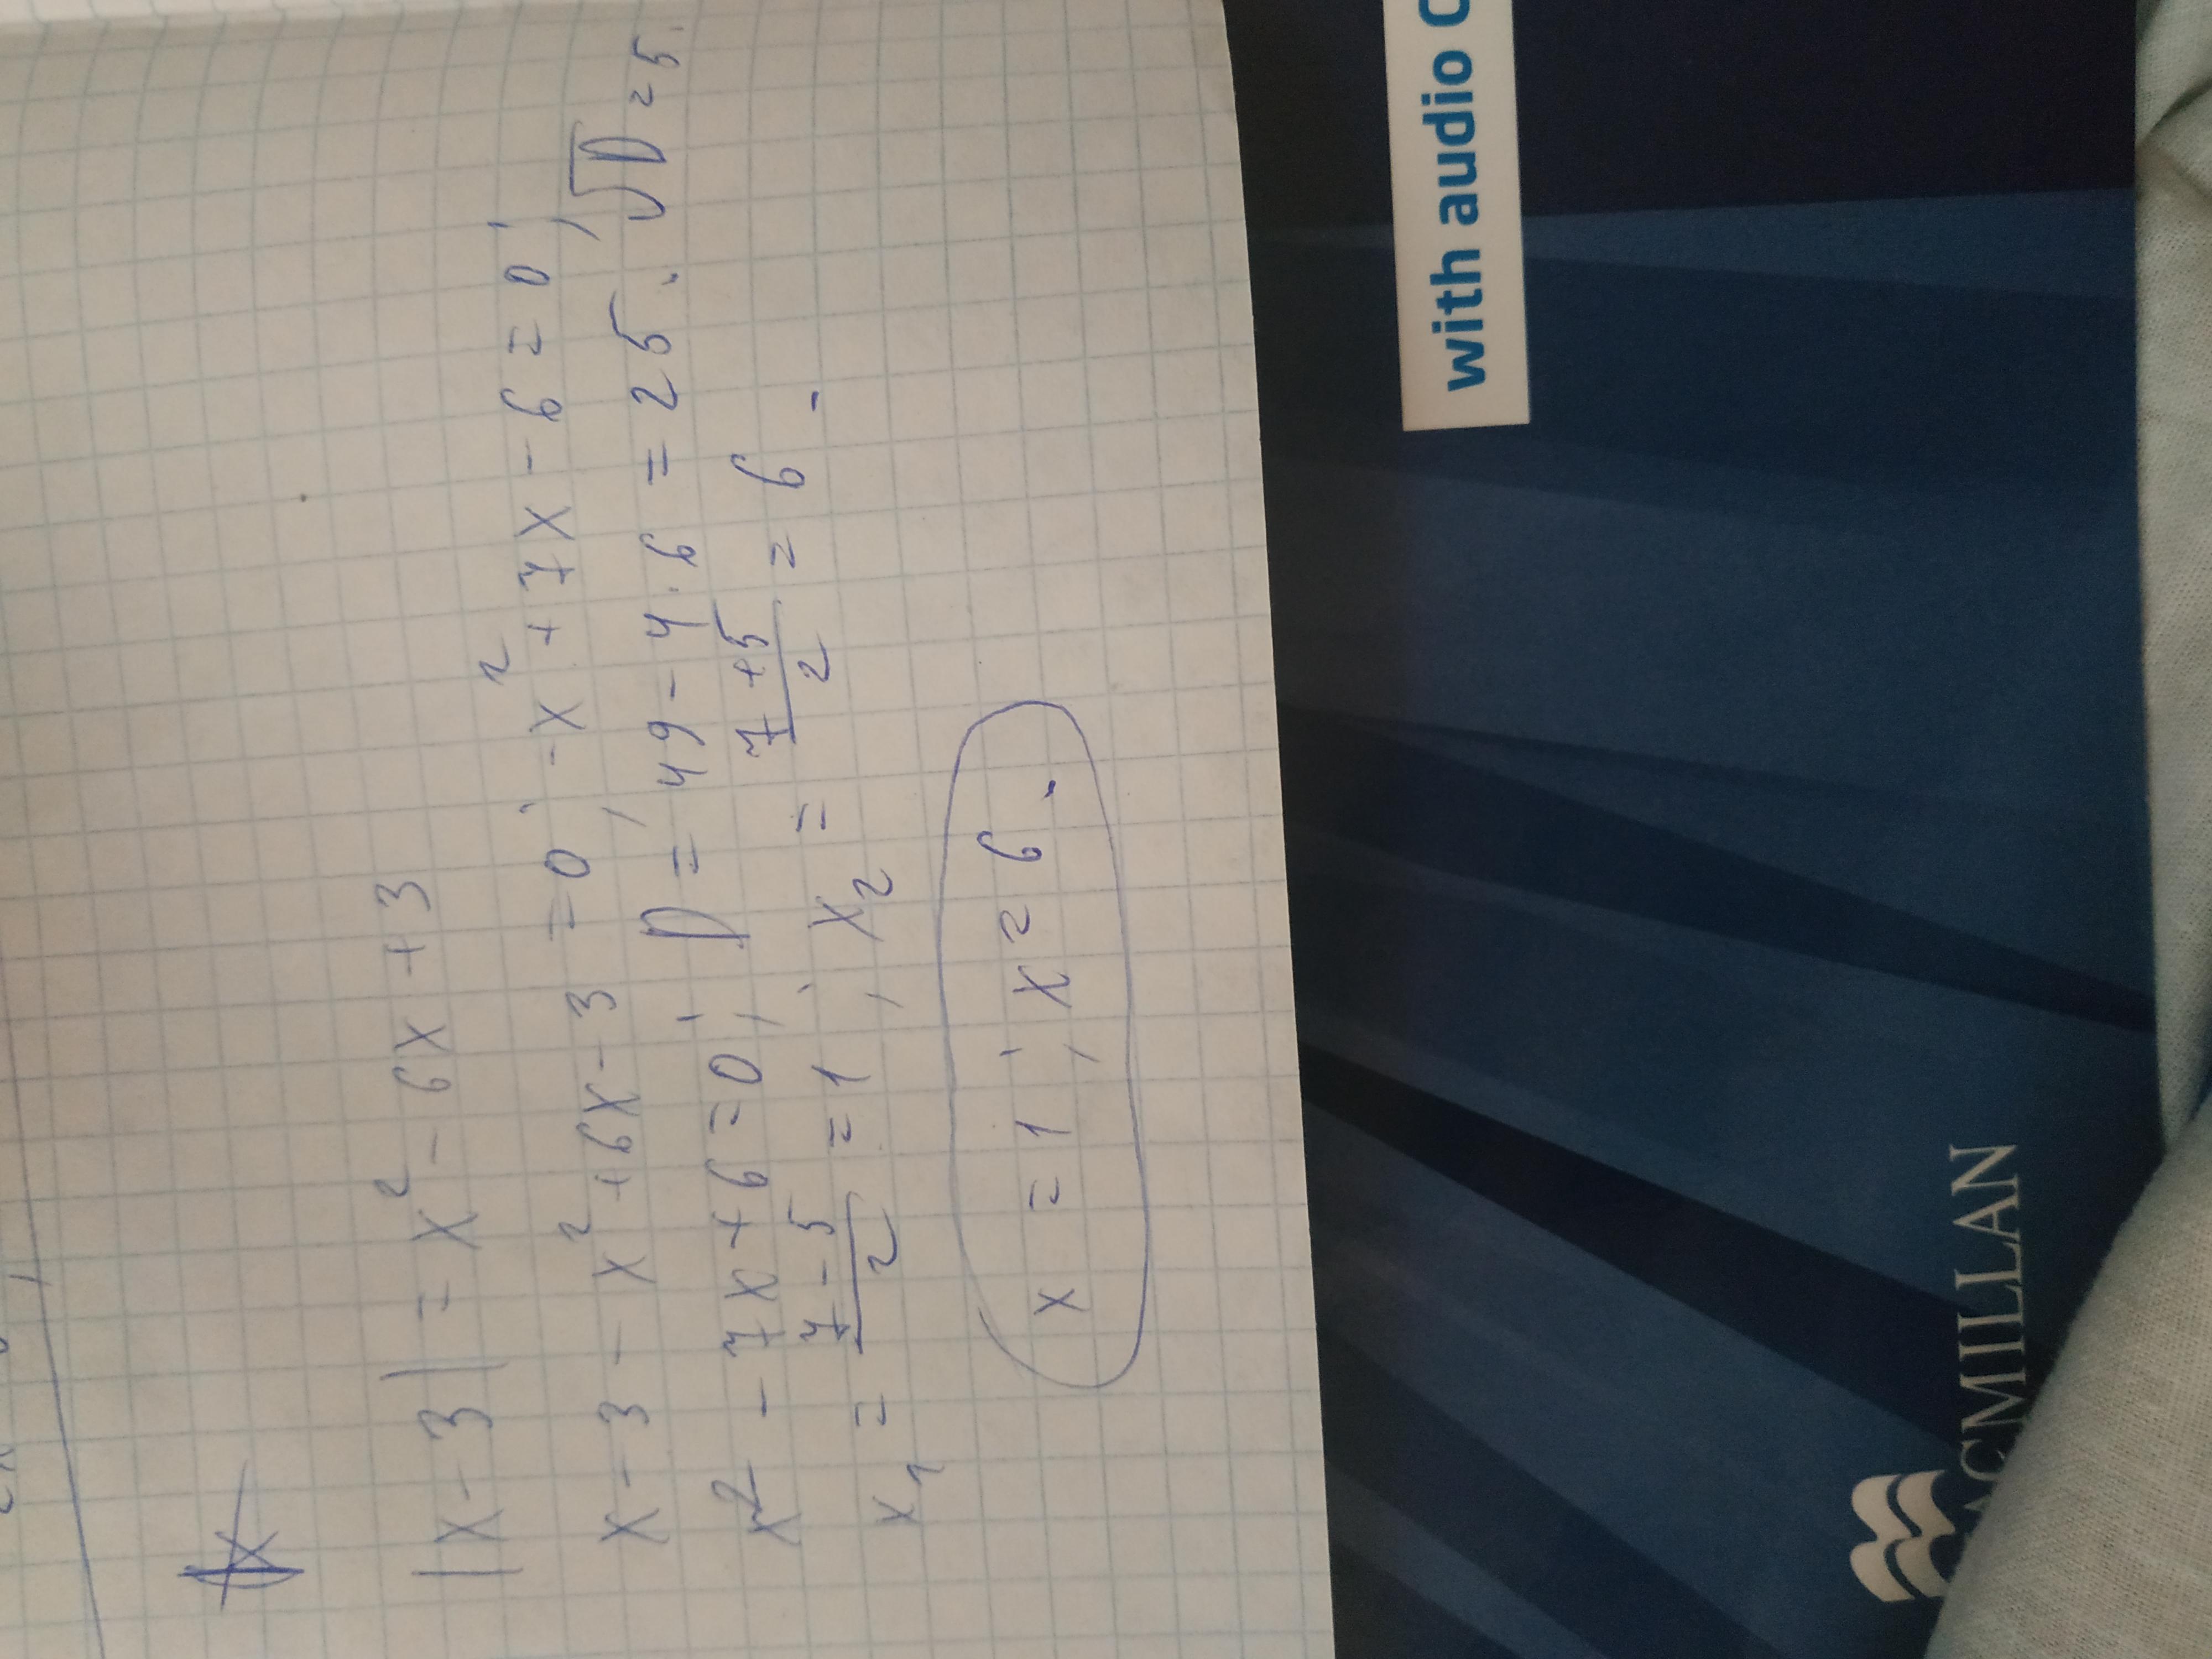 |x - 3| = x² - 6x + 3
x - 3 - x² + 6x - 3 = 0; -x² + 7x - 6 = 0;
x² - 7x + 6 = 0; D = 49 - 4·6 = 25. √D = 5.
x₁ = (7 - 5)/2 = 1; x₂ = (7 + 5)/2 = 6.
x = 1; x = 6.
with audio
MACMILLAN